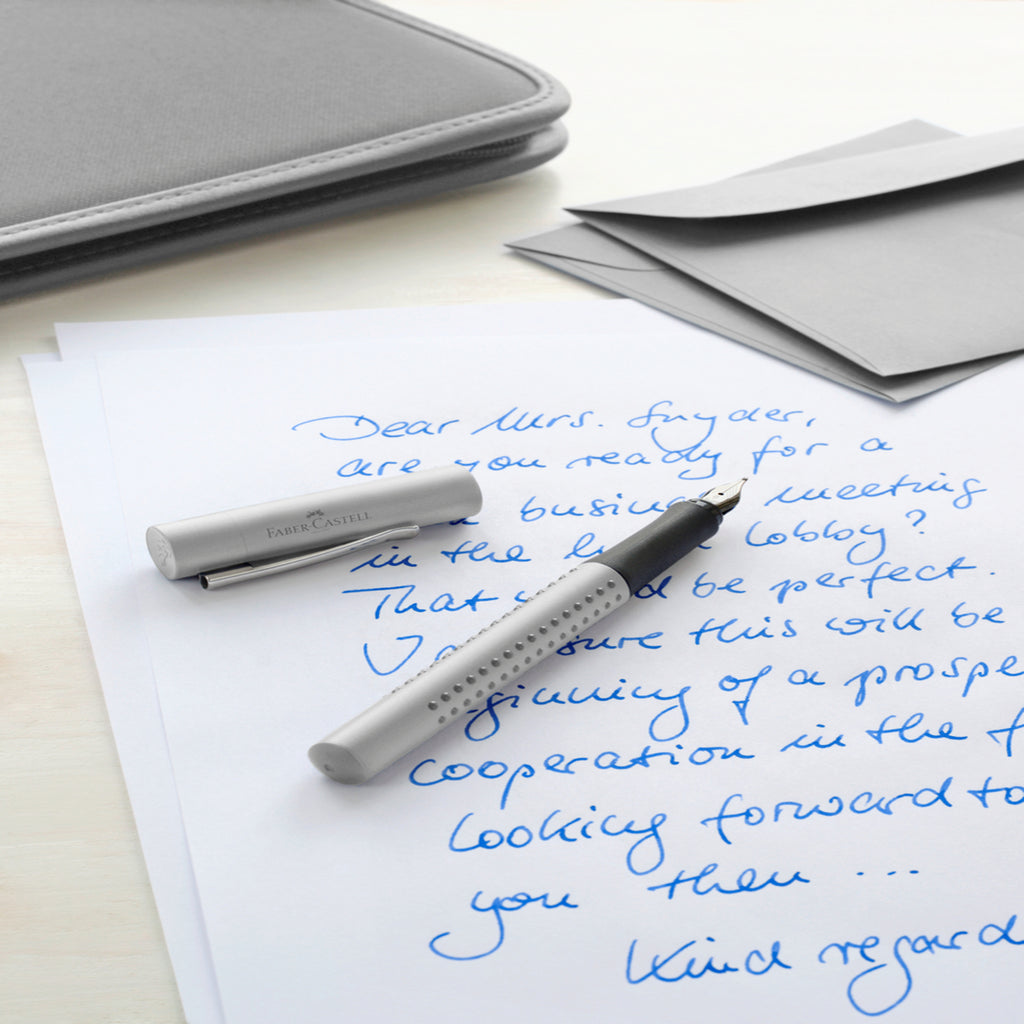 FABER-CASTELL
Dear Mrs. Snyder,
are you ready for a
meeting
in the lobby?
That be perfect.
sure this will be
of a
cooperation in the
looking forward to
you then ...
Kind